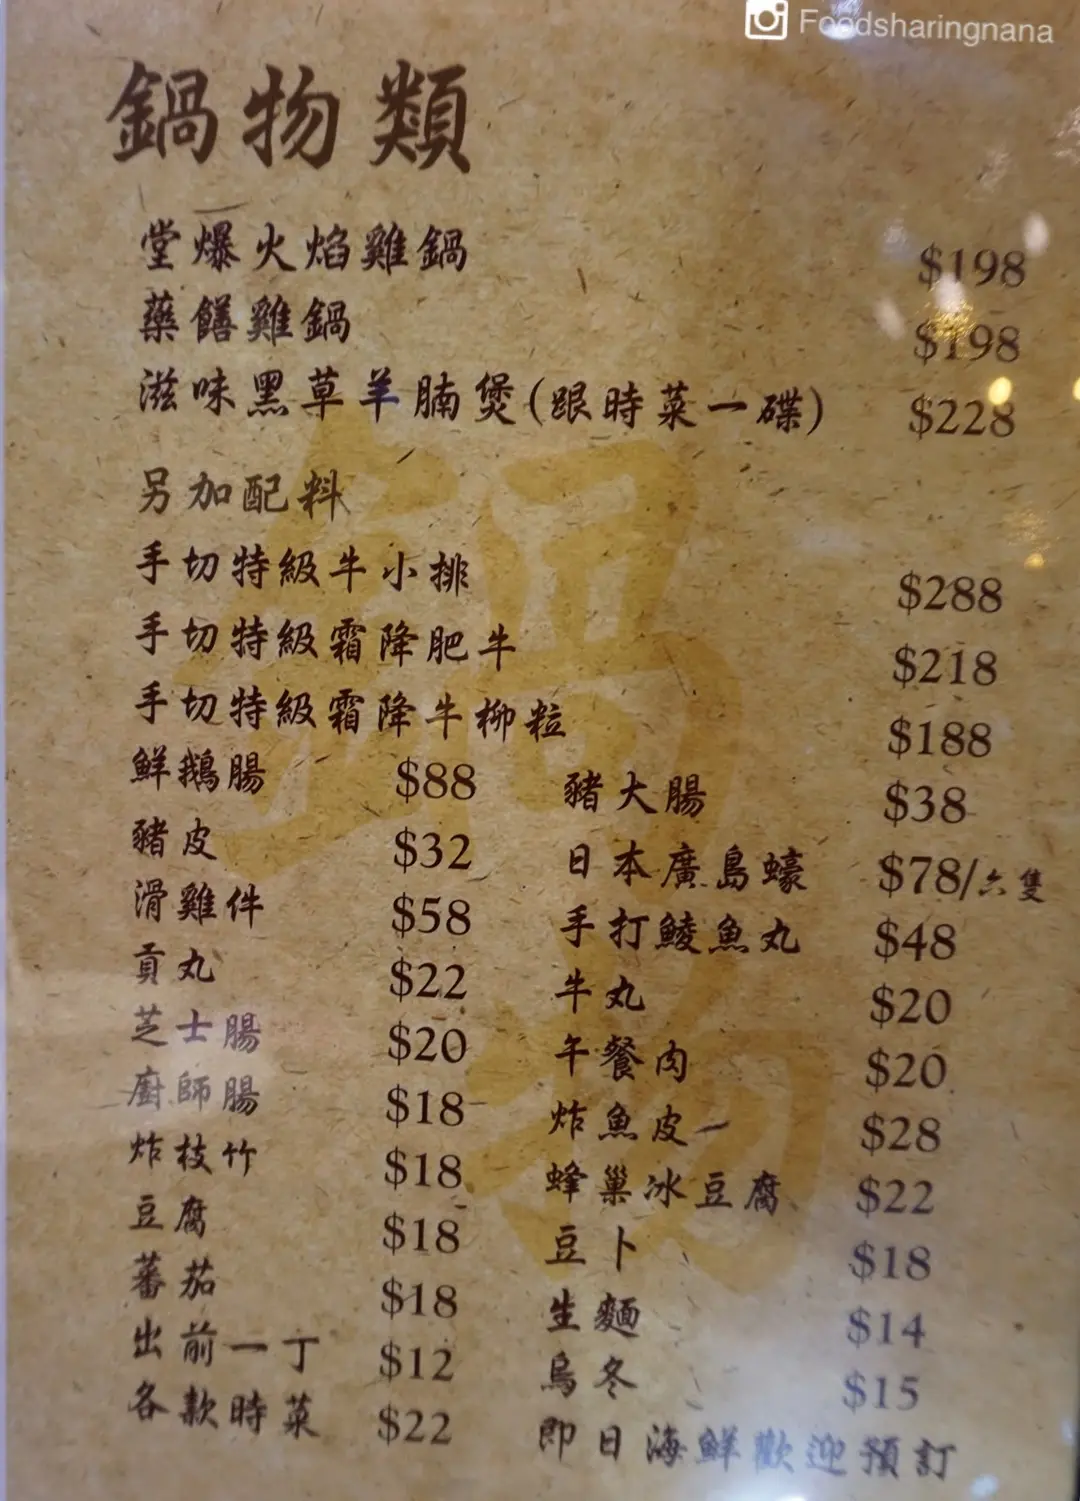 Foodsharingnana
鍋物類
堂爆火焰雞鍋 $198
藥饍雞鍋 $198
滋味黑草羊腩煲(跟時菜一碟) $228
另加配料
手切特級牛小排 $288
手切特級霜降肥牛 $218
手切特級霜降牛柳粒 $188
鮮鵝腸 $88 豬大腸 $38
豬皮 $32 日本廣島蠔 $78/六隻
滑雞件 $58 手打鯪魚丸 $48
貢丸 $22 牛丸 $20
芝士腸 $20 午餐肉 $20
廚師腸 $18 炸魚皮 $28
炸枝竹 $18 蜂巢冰豆腐 $22
豆腐 $18 豆卜 $18
蕃茄 $18 生麵 $14
出前一丁 $12 烏冬 $15
各款時菜 $22 即日海鮮歡迎預訂